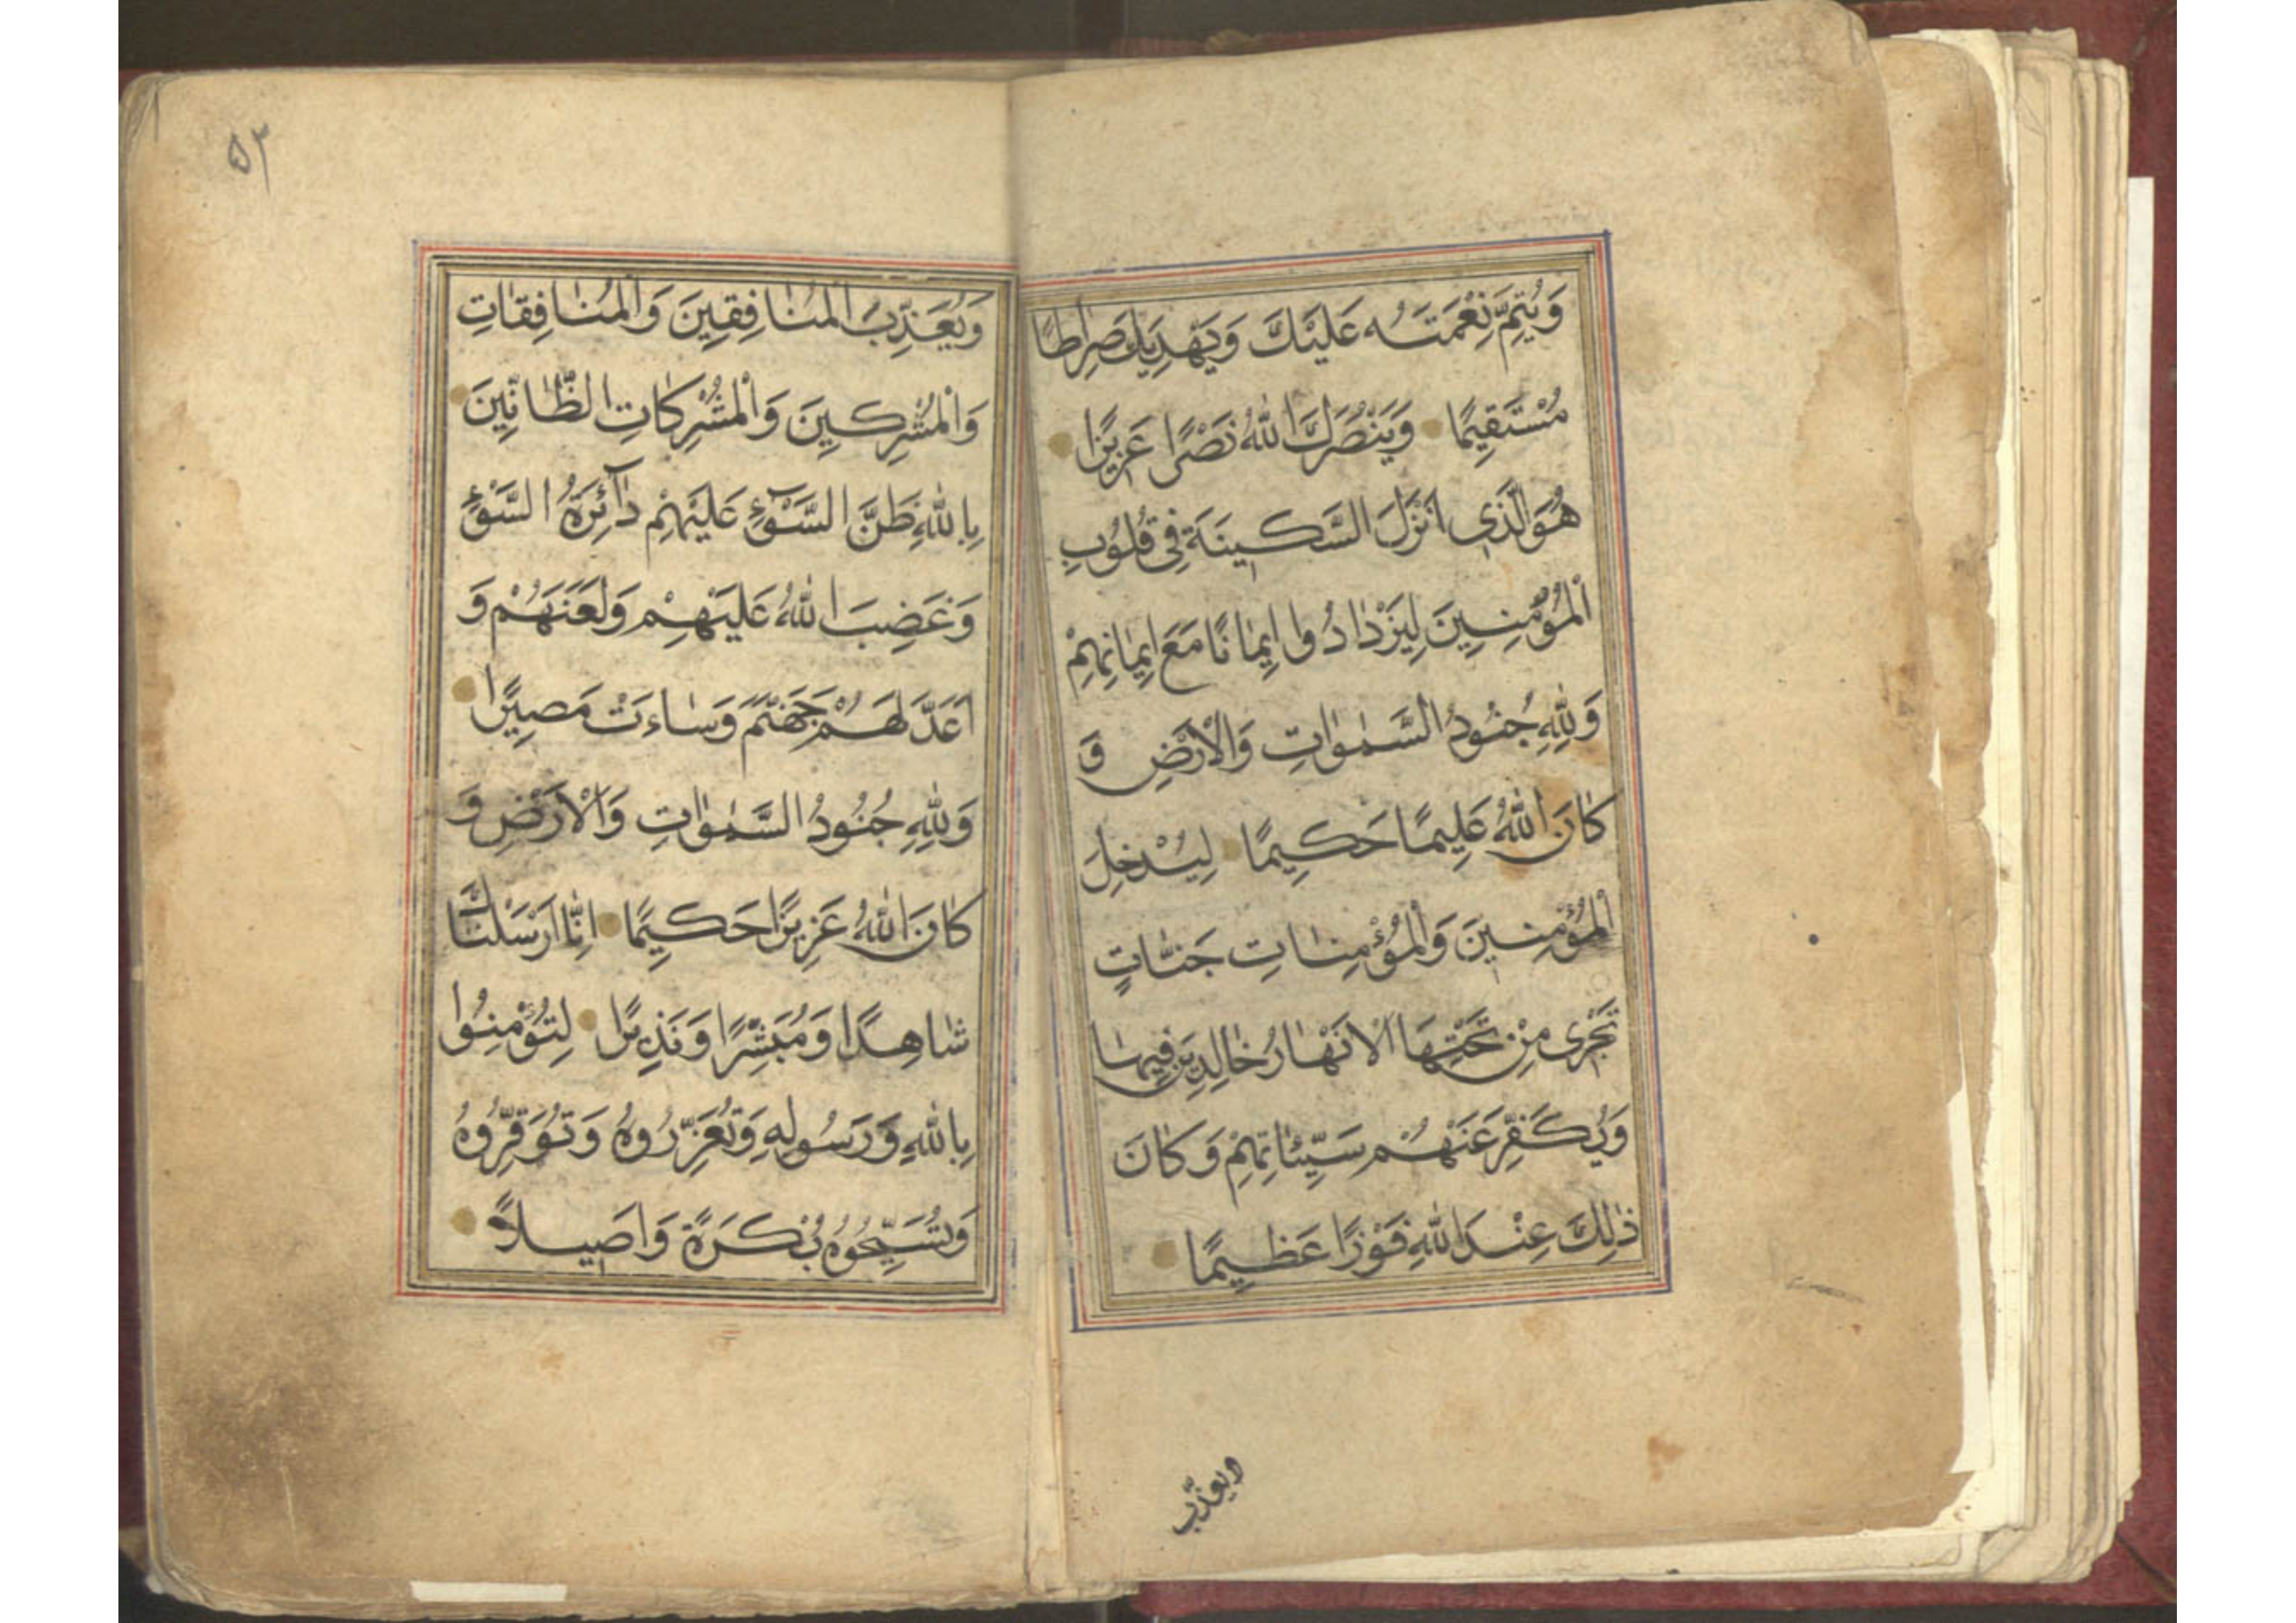 وَيُتِمَّ نِعْمَتَهُ عَلَيْكَ وَيَهْدِيَكَ صِرٰاطًا
مُسْتَقِيمًا وَيَنْصُرَكَ اللّٰهُ نَصْرًا عَزِيزًا
هُوَ الَّذِي اَنْزَلَ السَّكِينَةَ فِي قُلُوبِ
الْمُؤْمِنِينَ لِيَزْدٰادُوا اِيمٰانًا مَعَ اِيمٰانِهِمْ
وَلِلّٰهِ جُنُودُ السَّمٰوٰاتِ وَالْاَرْضِ وَ
كٰانَ اللّٰهُ عَلِيمًا حَكِيمًا لِيُدْخِلَ
الْمُؤْمِنِينَ وَالْمُؤْمِنٰاتِ جَنّٰاتٍ
تَجْرِي مِنْ تَحْتِهَا الْاَنْهٰارُ خٰالِدِينَ فِيهٰا
وَيُكَفِّرَ عَنْهُمْ سَيِّئٰاتِهِمْ وَكٰانَ
ذٰلِكَ عِنْدَ اللّٰهِ فَوْزًا عَظِيمًا
ويعذّب
۵۲
وَيُعَذِّبَ الْمُنٰافِقِينَ وَالْمُنٰافِقٰاتِ
وَالْمُشْرِكِينَ وَالْمُشْرِكٰاتِ الظّٰانِّينَ
بِاللّٰهِ ظَنَّ السَّوْءِ عَلَيْهِمْ دٰآئِرَةُ السَّوْءِ
وَغَضِبَ اللّٰهُ عَلَيْهِمْ وَلَعَنَهُمْ وَ
اَعَدَّ لَهُمْ جَهَنَّمَ وَسٰاءَتْ مَصِيرًا
وَلِلّٰهِ جُنُودُ السَّمٰوٰاتِ وَالْاَرْضِ وَ
كٰانَ اللّٰهُ عَزِيزًا حَكِيمًا اِنّٰا اَرْسَلْنٰاكَ
شٰاهِدًا وَمُبَشِّرًا وَنَذِيرًا لِتُؤْمِنُوا
بِاللّٰهِ وَرَسُولِهِ وَتُعَزِّرُوهُ وَتُوَقِّرُوهُ
وَتُسَبِّحُوهُ بُكْرَةً وَاَصِيلاً